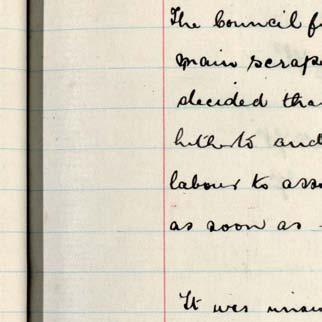 The Council f
main scrape
decided tha
hitherto and
labour to asso
as soon as
It was unan